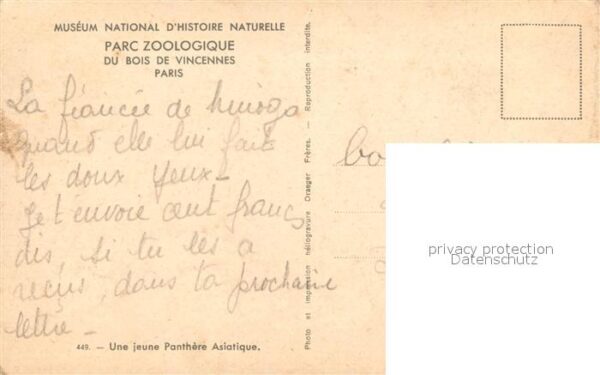 MUSÉUM NATIONAL D'HISTOIRE NATURELLE
PARC ZOOLOGIQUE
DU BOIS DE VINCENNES
PARIS
La fiancée de
quand elle lui fait
les doux yeux –
Je t'envoie cent francs
dis, si tu les a
reçus, dans ta prochaine
lettre –
449. – Une jeune Panthère Asiatique.
Photo et impression héliogravure Draeger Frères. – Reproduction interdite.
privacy protection
Datenschutz